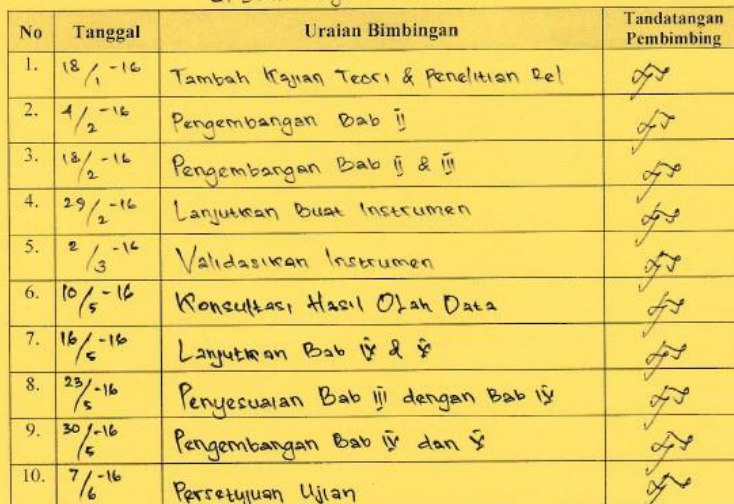 No Tanggal Uraian Bimbingan Tandatangan Pembimbing
1. 18/1-16 Tambah Kajian Teori & Penelitian Rel
2. 4/2-16 Pengembangan Bab II
3. 18/2-16 Pengembangan Bab II & III
4. 29/2-16 Lanjutkan Buat Instrumen
5. 2/3-16 Validasikan Instrumen
6. 10/5-16 Konsultasi Hasil Olah Data
7. 16/5-16 Lanjutkan Bab IV & V
8. 23/5-16 Penyesuaian Bab III dengan Bab IV
9. 30/5-16 Pengembangan Bab IV dan V
10. 7/6-16 Persetujuan Ujian